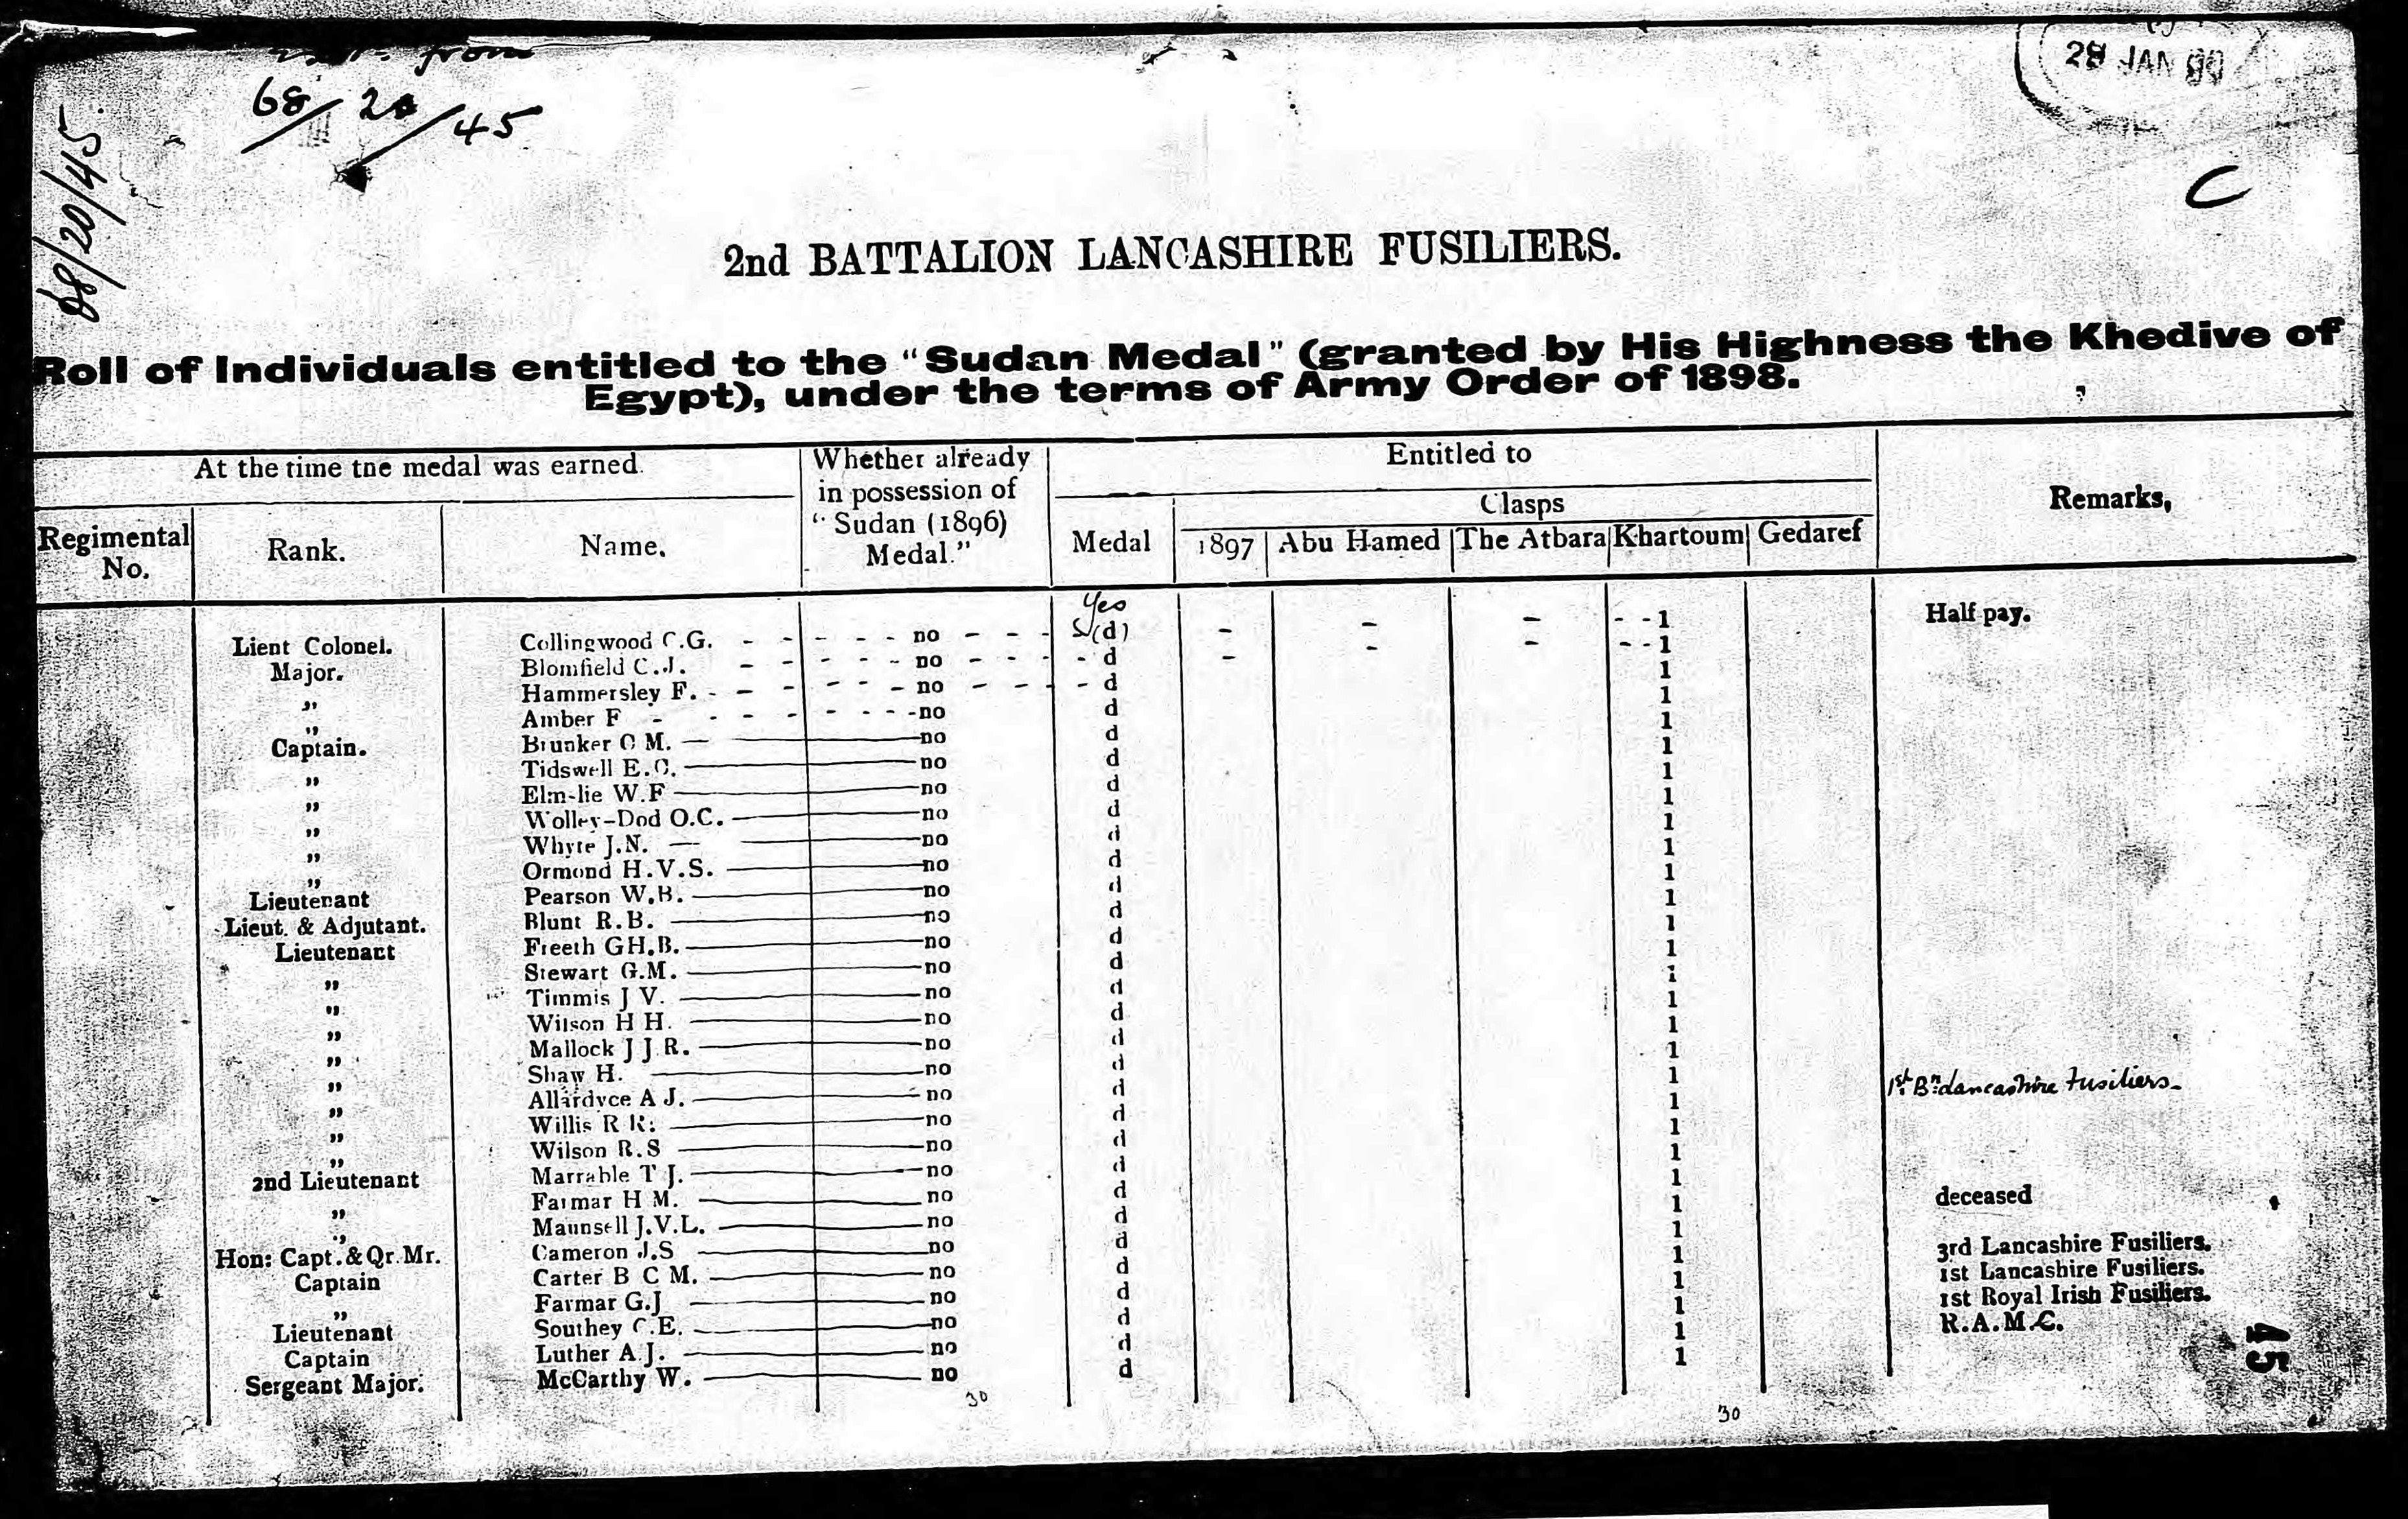 from
68/20/45
68/20/45
28 JAN
C
2nd BATTALION LANCASHIRE FUSILIERS.
Roll of Individuals entitled to the "Sudan Medal" (granted by His Highness the Khedive of
Egypt), under the terms of Army Order of 1898.
At the time tne medal was earned. Whether already in possession of "Sudan (1896) Medal." Entitled to Remarks,
Clasps
Regimental No. Rank. Name. Medal 1897 Abu Hamed The Atbara Khartoum Gedaref
Yes
Lient Colonel. Collingwood C.G. - - - - - no - - - (d) - - - - - 1 Half pay.
Major. Blomfield C.J. - - - - - no - - - - d - - - - - 1
„ Hammersley F. - - - - - - no - - - - d 1
„ Amber F - - - - - - - -no d 1
Captain. Brunker C M. — no d 1
„ Tidswell E.C. no d 1
„ Elm-lie W.F no d 1
„ Wolley-Dod O.C. no d 1
„ Whyte J.N. — no d 1
„ Ormond H.V.S. no d 1
Lieutenant Pearson W.B. no d 1
Lieut. & Adjutant. Blunt R.B. no d 1
Lieutenant Freeth GH.B. no d 1
„ Stewart G.M. no d 1
„ Timmis J V. no d 1
„ Wilson H H. no d 1
„ Mallock J J R. no d 1
„ Shaw H. no d 1
„ Allardyce A J. no d 1 1st Bn Lancashire Fusiliers
„ Willis R K: no d 1
„ Wilson R.S no d 1
2nd Lieutenant Marrable T J. no d 1
„ Farmar H M. no d 1 deceased
„ Maunsell J.V.L. no d 1
Hon: Capt. & Qr. Mr. Cameron J.S no d 1
Captain Carter B C M. no d 1 3rd Lancashire Fusiliers.
„ Farmar G.J no d 1 1st Lancashire Fusiliers.
Lieutenant Southey C.E. no d 1 1st Royal Irish Fusiliers.
Captain Luther A.J. no d 1 R.A.M.C.
Sergeant Major. McCarthy W. no d 1
30 30
45